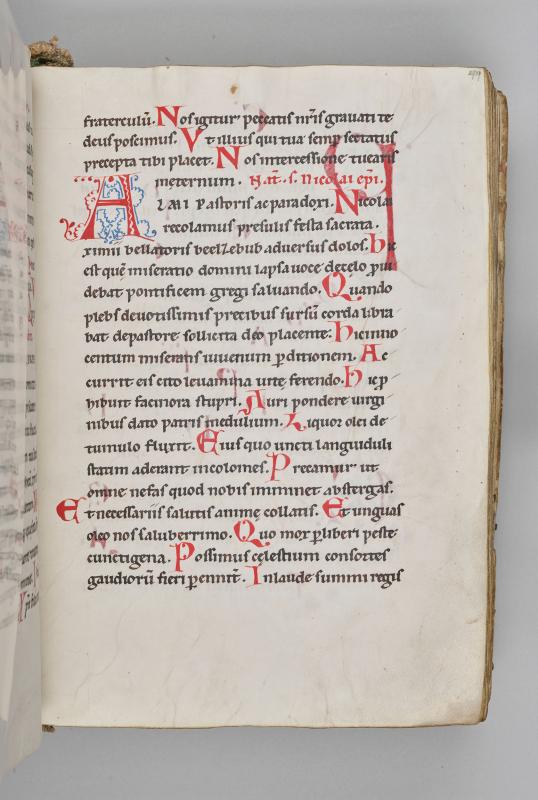 fraterculū. Nos igitur peccatis nr̄is gravati te
deus poscimus. Ut illius qui tua semp sectatus
precepta tibi placet. Nos intercessione tuearis
ineternum. Nat̄. s. Nicolai ep̄i.
ALMI Pastoris ac paradoxi. Nicolai
recolamus presulis festa sacrata.
ximii bellatoris beelzebub adversus dolos. hic
est quē miseratio domini lapsa voce de celo p̄vi
debat pontificem gregi salvando. Quando
plebs devotissimis precibus sursū corda libra
bat de pastore sollicita deo placente. hic inno
centum miserans iuvenum pditionem. Ac
currit eis cito levamina vite ferendo. hic p
hibuit facinora stupri. Auri pondere virgi
nibus dato patris medullum. Liquor olei de
tumulo fluxit. Eius quo uncti languiduli
statim aderant incolomes. Precamur ut
omne nefas quod nobis imminet abstergas.
Et necessariis salutis anime collatis. Et unguas
oleo nos saluberrimo. Quo mox pliberi peste
cunctigena. Possimus celestium consortes
gaudiorū fieri pennit̄. In laude summi regis